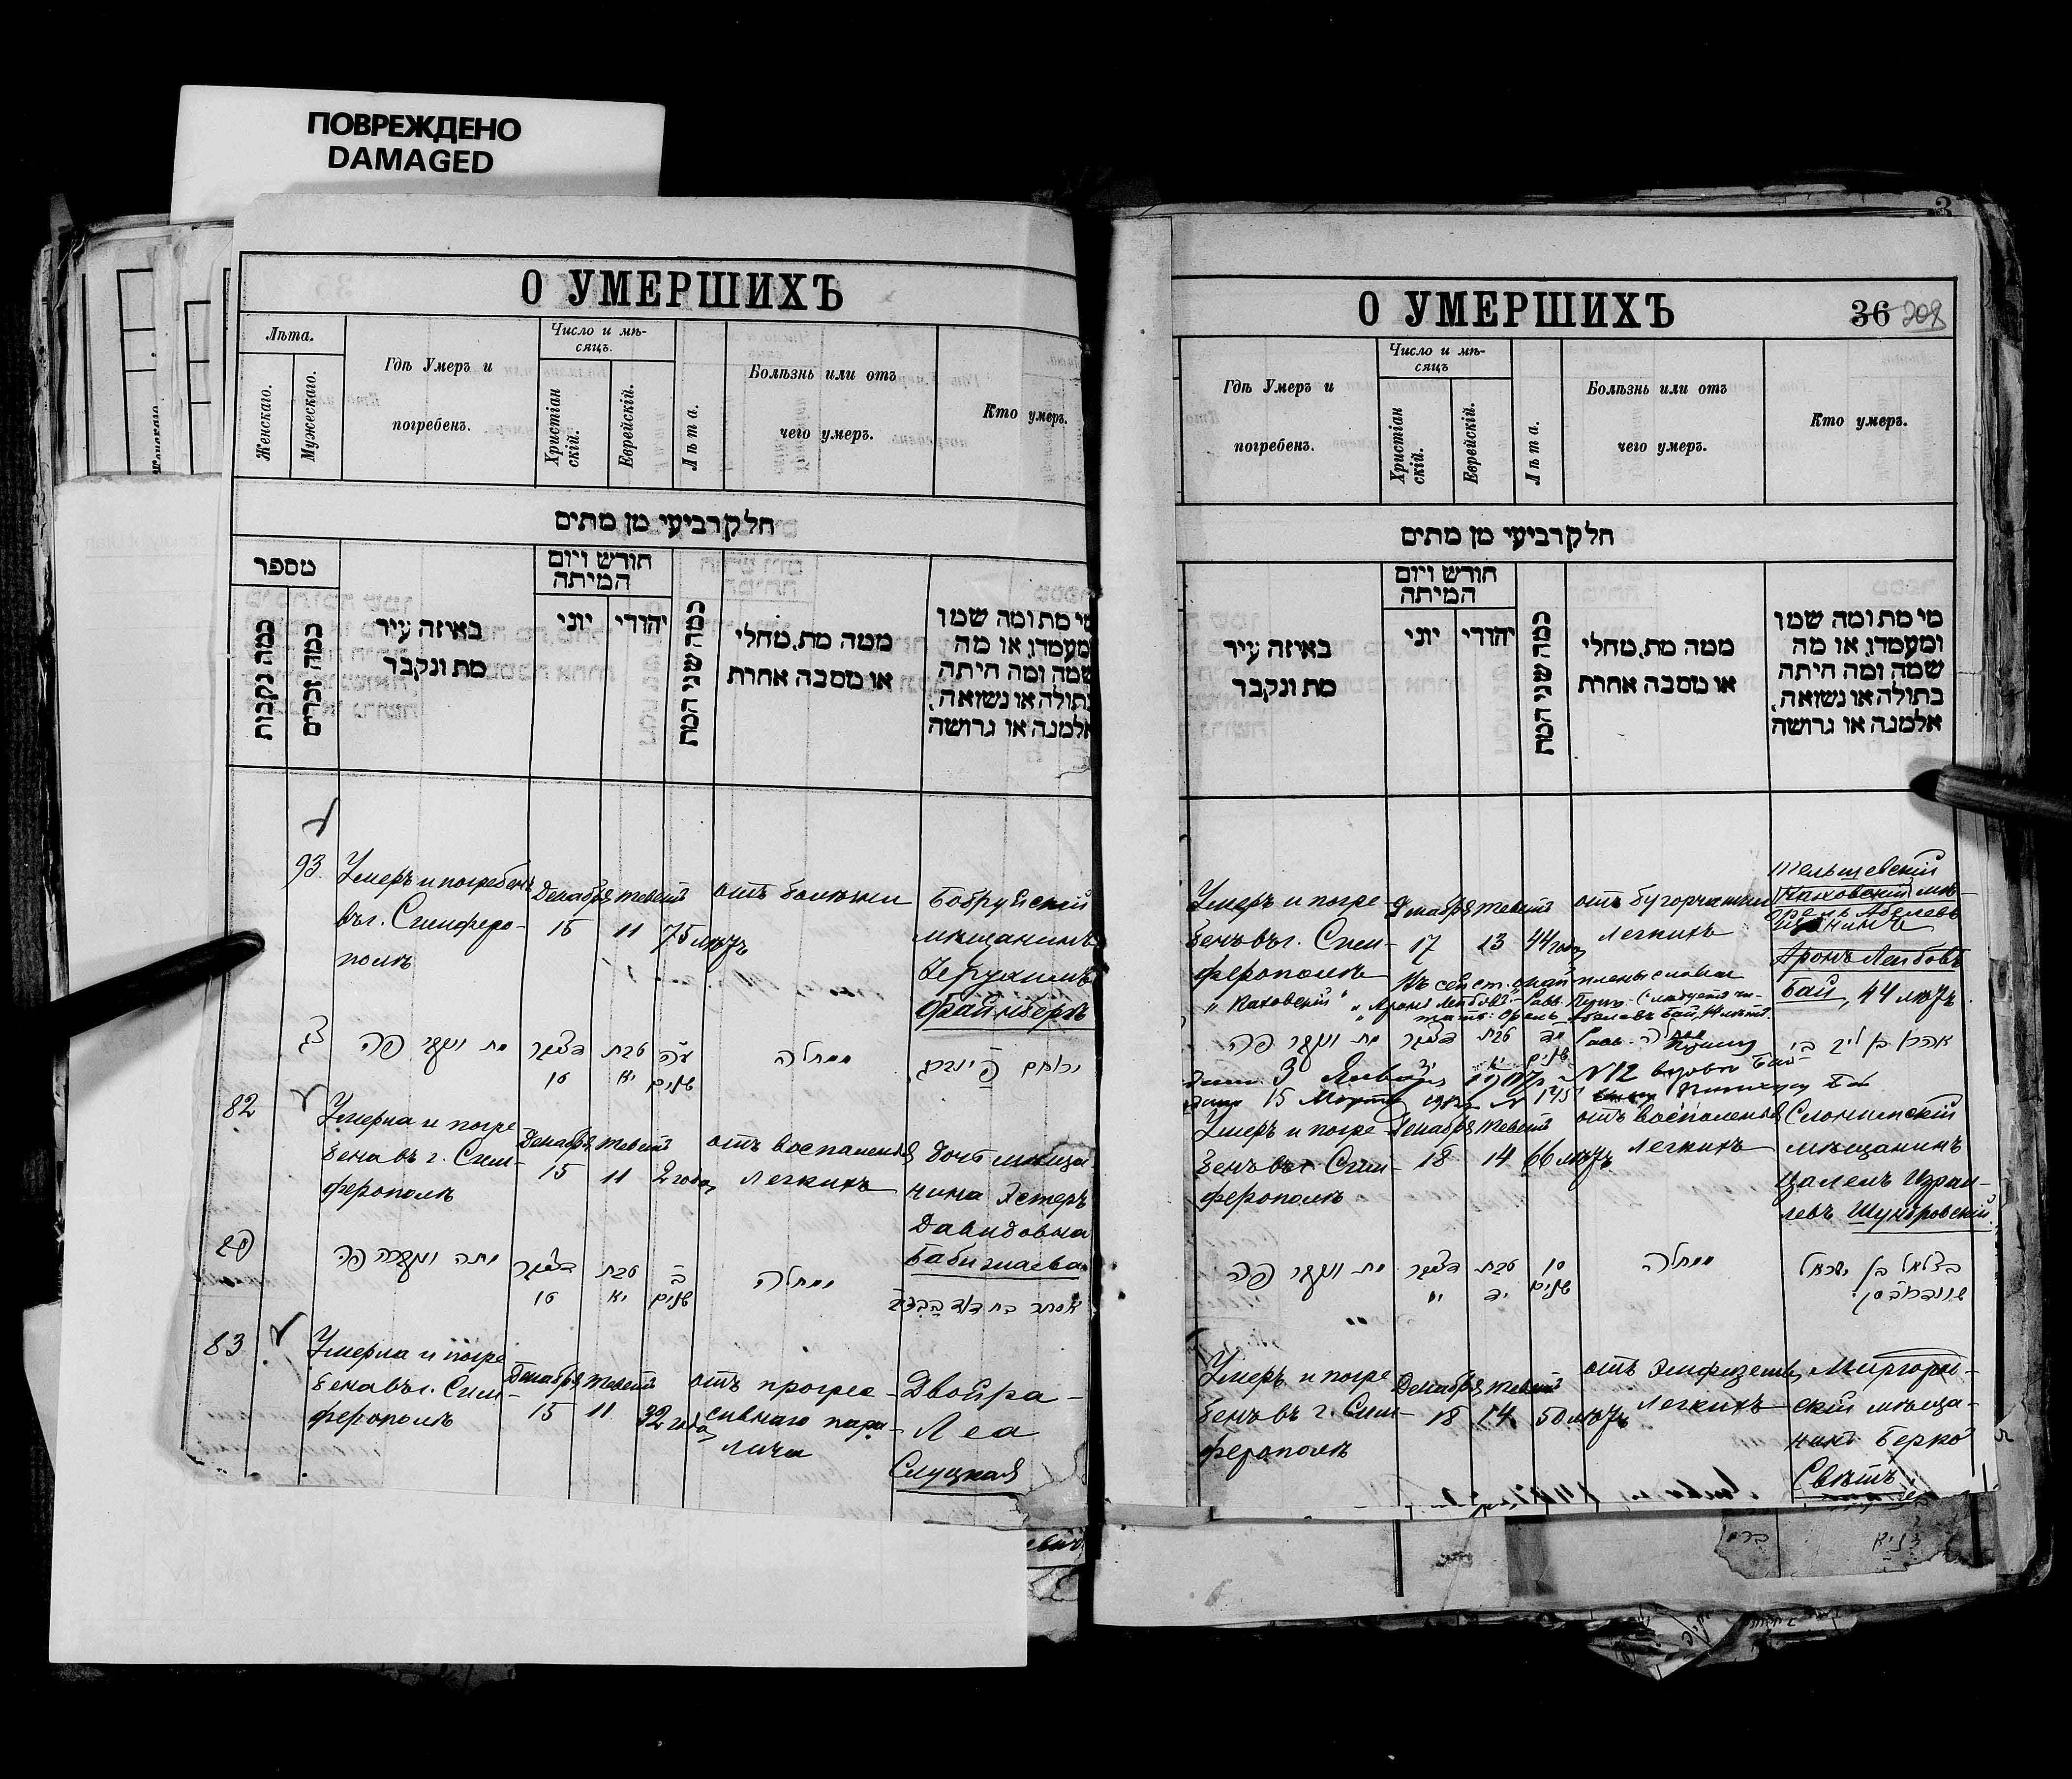 ПОВРЕЖДЕНО
DAMAGED
О УМЕРШИХЪ
Лѣта.
Женскаго.
Мужескаго.
Гдѣ Умеръ и
погребенъ.
Число и мѣ-
сяцъ.
Христіан
скій.
Еврейскій.
Лѣта.
Болѣзнь или отъ
чего умеръ.
Кто умеръ.
חלק רביעי מן מתים
מספר
כמה נקבות
כמה זכרים
באיזה עיר
מת ונקבר
חודש ויום
המיתה
יוני
יהודי
כמה שני המת
ממה מת, מחלי
או מסבה אחרת
מי מת ומה שמו
ומעמדו, או מה
שמה ומה היתה
בתולה או נשואה,
אלמנה או גרושה
93.
Умеръ и погребенъ
въ г. Симферо-
полѣ
Декабря
15
Тевета
11
75 лѣтъ
отъ болѣзни
Бобруйскій
мѣщанинъ
Іерухимъ
Файнбергъ
צג
מת ונקבר פה
דצמבר
טו
טבת
יא
עה
שנים
מחלה
82
Умерла и погре
бена въ г. Сим-
ферополѣ
Декабря
15
Тевета
11
2 года
отъ воспаленія
легкихъ
Дочь мѣща-
нина Эстеръ
Давидовна
פב
מתה ונקברה פה
דצמבר
טו
טבת
יא
ב
שנים
מחלה
אסתר בת דוד
83
Умерла и погре
бена въ г. Сим-
ферополѣ
Декабря
15
Тевета
11
32 года
отъ прогрес-
сивнаго пара-
лича
Двойра-
Леа
Слуцкая
О УМЕРШИХЪ
36 208
Гдѣ Умеръ и
погребенъ.
Число и мѣ-
сяцъ
Христіан
скій.
Еврейскій.
Лѣта.
Болѣзнь или отъ
чего умеръ.
Кто умеръ.
חלק רביעי מן מתים
באיזה עיר
מת ונקבר
חודש ויום
המיתה
יוני
יהודי
כמה שני המת
ממה מת, מחלי
או מסבה אחרת
מי מת ומה שמו
ומעמדו, או מה
שמה ומה היתה
בתולה או נשואה,
אלמנה או גרושה
Умеръ и погре
бенъ въ г. Сим-
ферополѣ
Декабря
17
Тевета
13
44 года
отъ бугорчатки
легкихъ
Тельшевскій
Каховскій мѣ-
Орель Абелевъ
щанинъ
Аронъ Лейбовъ
Бай, 44 лѣтъ
"Каховскій" "Аронъ Лейбовъ"
читать: Орель Абелевъ Бай, 44 лѣтъ.
מת ונקבר פה
דצמבר
טבת
שנים
אהרן בן ליב ביי
3 Января 1917 г. N 12
15 Марта N 145
Умеръ и погре
бенъ въ г. Сим-
ферополѣ
Декабря
18
Тевета
14
66 лѣтъ
отъ воспаленія
легкихъ
Слонимскій
мѣщанинъ
Цалелъ Израи-
левъ
מת ונקבר פה
דצמבר
טבת
יד
סו
שנים
מחלה
בצלאל בן ישראל
Умеръ и погре
бенъ въ г. Сим-
ферополѣ
Декабря
18
Тевета
14
50 лѣтъ
отъ эмфиземы
легкихъ
Миргород-
скій мѣща-
нинъ Берко
Свѣтъ